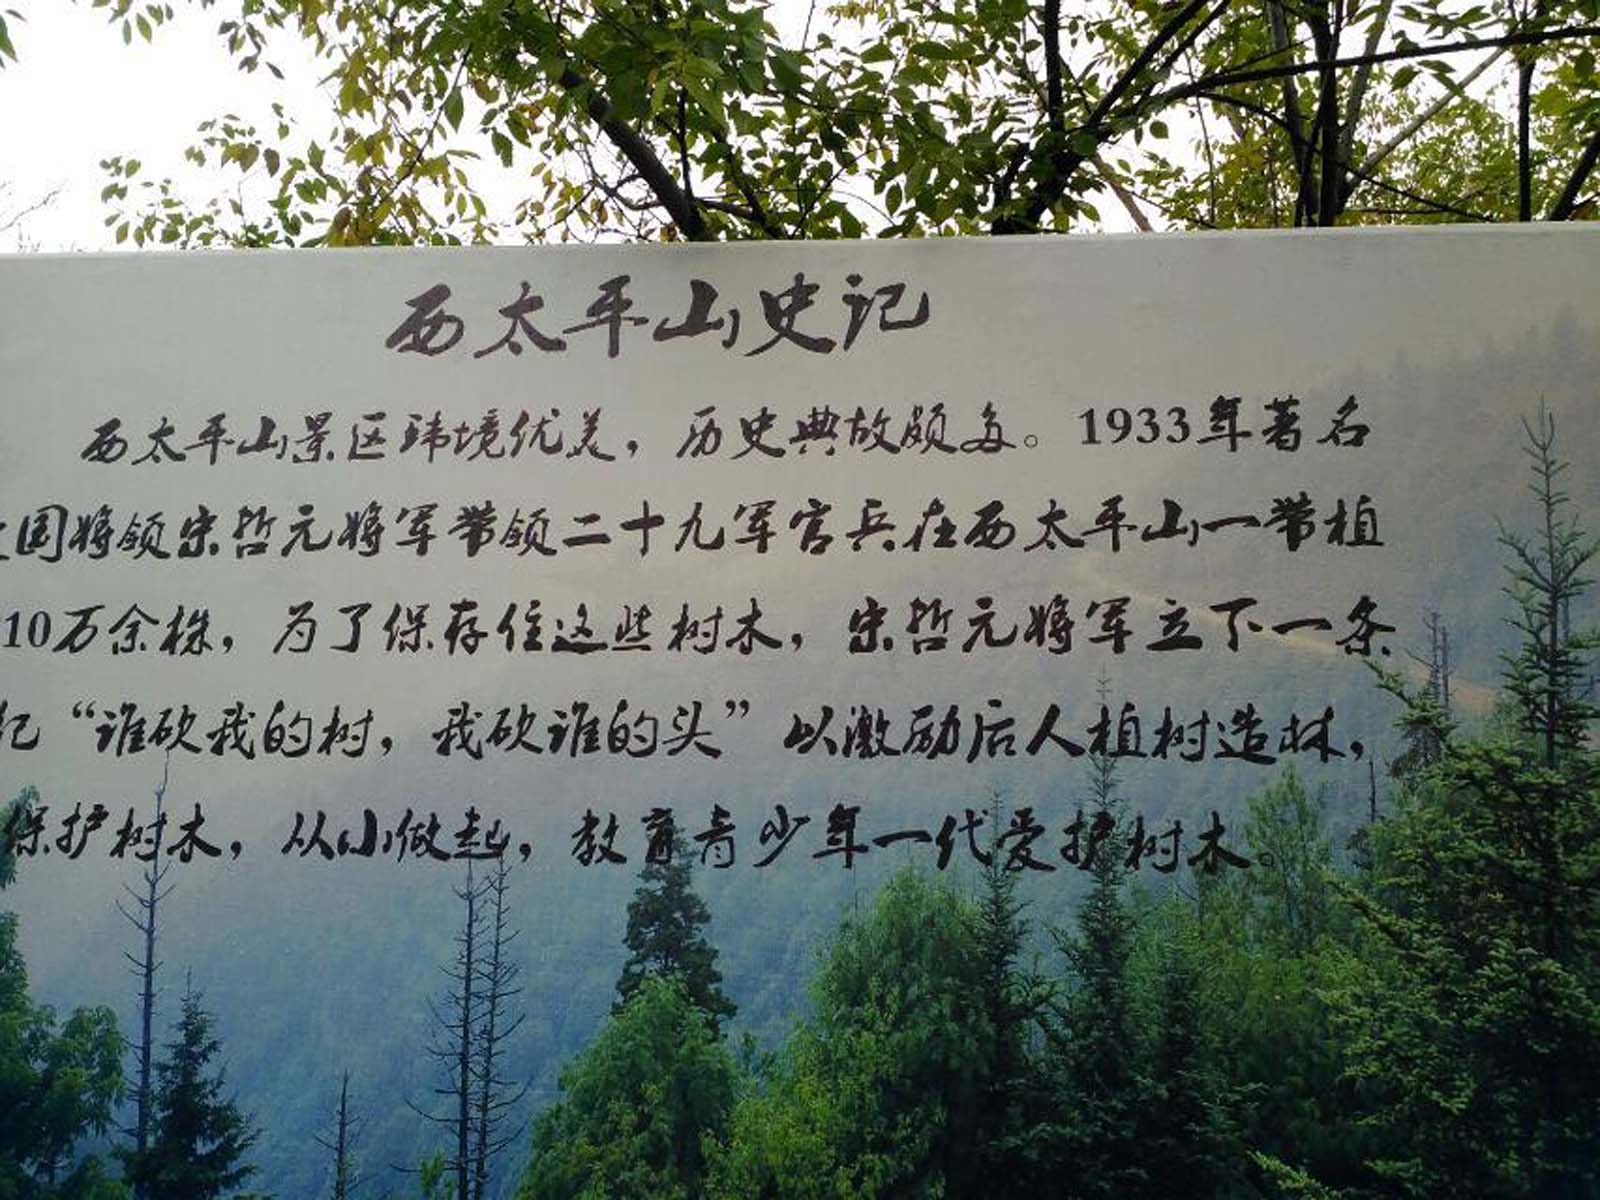 西太平山史记
西太平山景区环境优美，历史典故颇多。1933年著名
国将领宋哲元将军带领二十九军官兵在西太平山一带植
10万余株，为了保存住这些树木，宋哲元将军立下一条
纪“谁砍我的树，我砍谁的头”以激励后人植树造林，
保护树木，从小做起，教育青少年一代爱护树木。